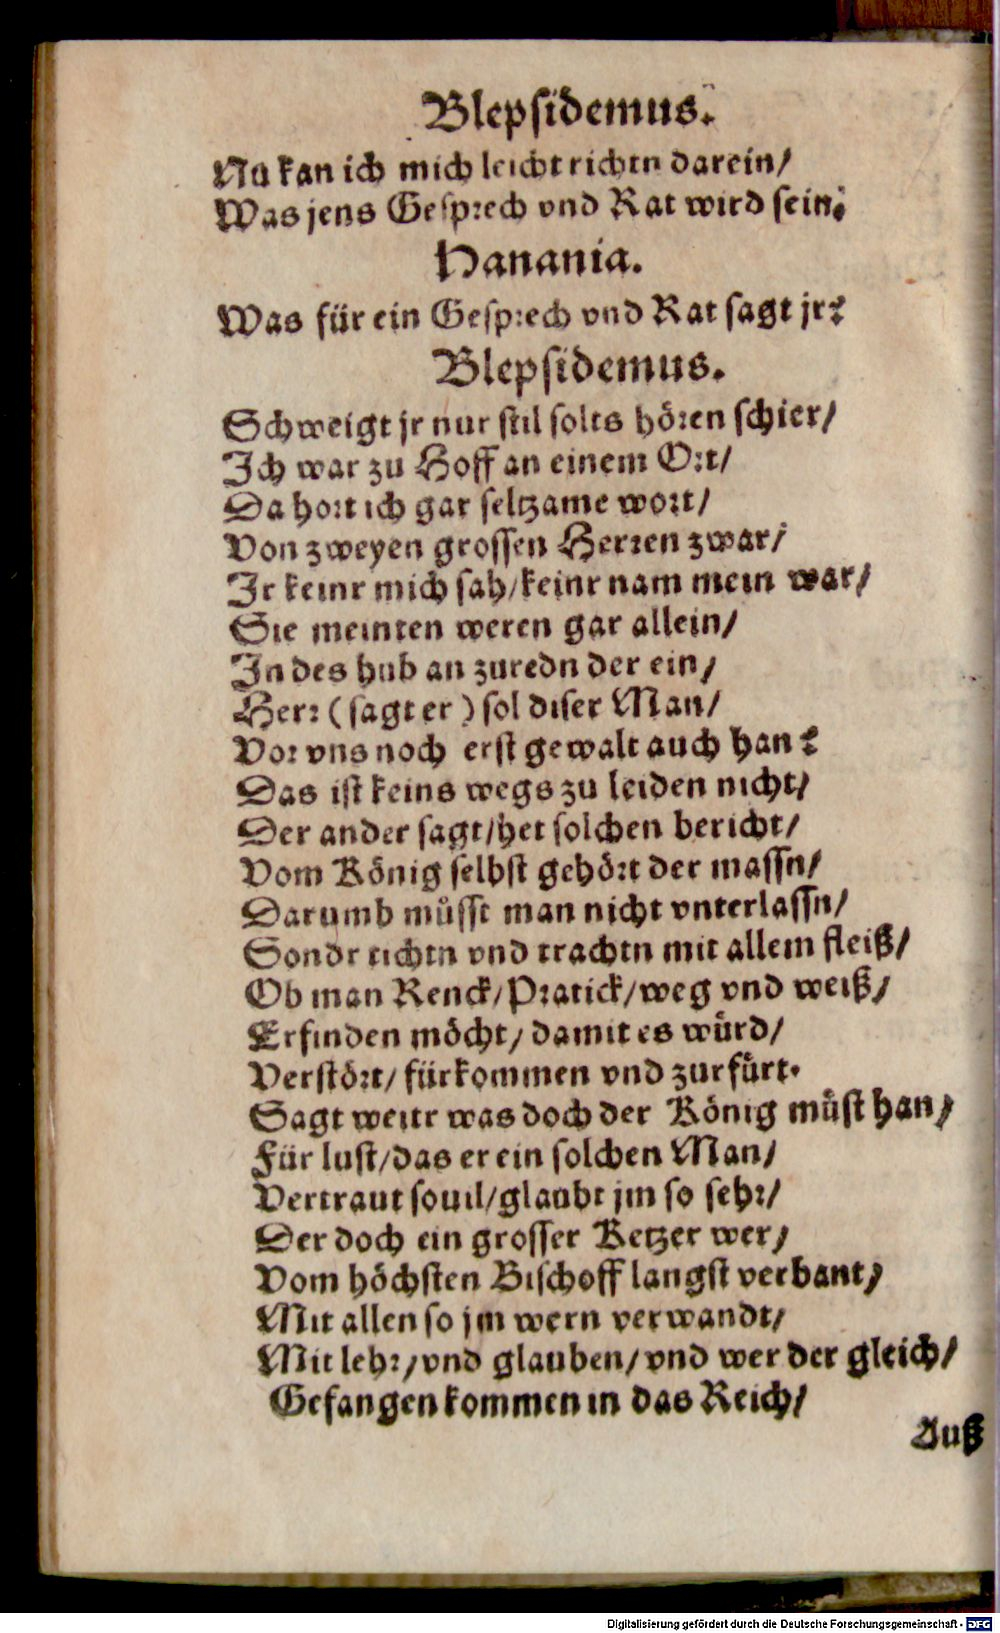 Blepsidemus.
Nu kan ich mich leicht richtn darein/
Was jens Gesprech vnd Rat wird sein.
Hanania.
Was für ein Gesprech vnd Rat sagt jr?
Blepsidemus.
Schweigt jr nur stil solts hören schier/
Ich war zu Hoff an einem Ort/
Da hort ich gar seltzame wort/
Von zweyen grossen Herren zwar/
Ir keinr mich sah/keinr nam mein war/
Sie meinten weren gar allein/
In des hub an zuredn der ein/
Herr (sagt er) sol diser Man/
Vor vns noch erst gewalt auch han?
Das ist keins wegs zu leiden nicht/
Der ander sagt/het solchen bericht/
Vom König selbst gehört der massn/
Darumb müsst man nicht vnterlassn/
Sondr tichtn vnd trachtn mit allem fleiß/
Ob man Renck/Pratick/weg vnd weiß/
Erfinden möcht/damit es würd/
Verstört/fürkommen vnd zurfürt.
Sagt weitr was doch der König müst han/
Für lust/das er ein solchen Man/
Vertraut souil/glaubt jm so sehr/
Der doch ein grosser Ketzer wer/
Vom höchsten Bischoff langst verbant/
Mit allen so jm wern verwandt/
Mit lehr/vnd glauben/vnd wer der gleich/
Gefangen kommen in das Reich/
Auß
Digitalisierung gefördert durch die Deutsche Forschungsgemeinschaft - DFG